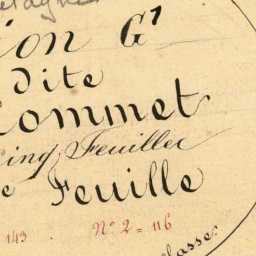 ion G¹
dite
ommet
inq Feuilles
e Feuille
143 N° 2 = 116
classe